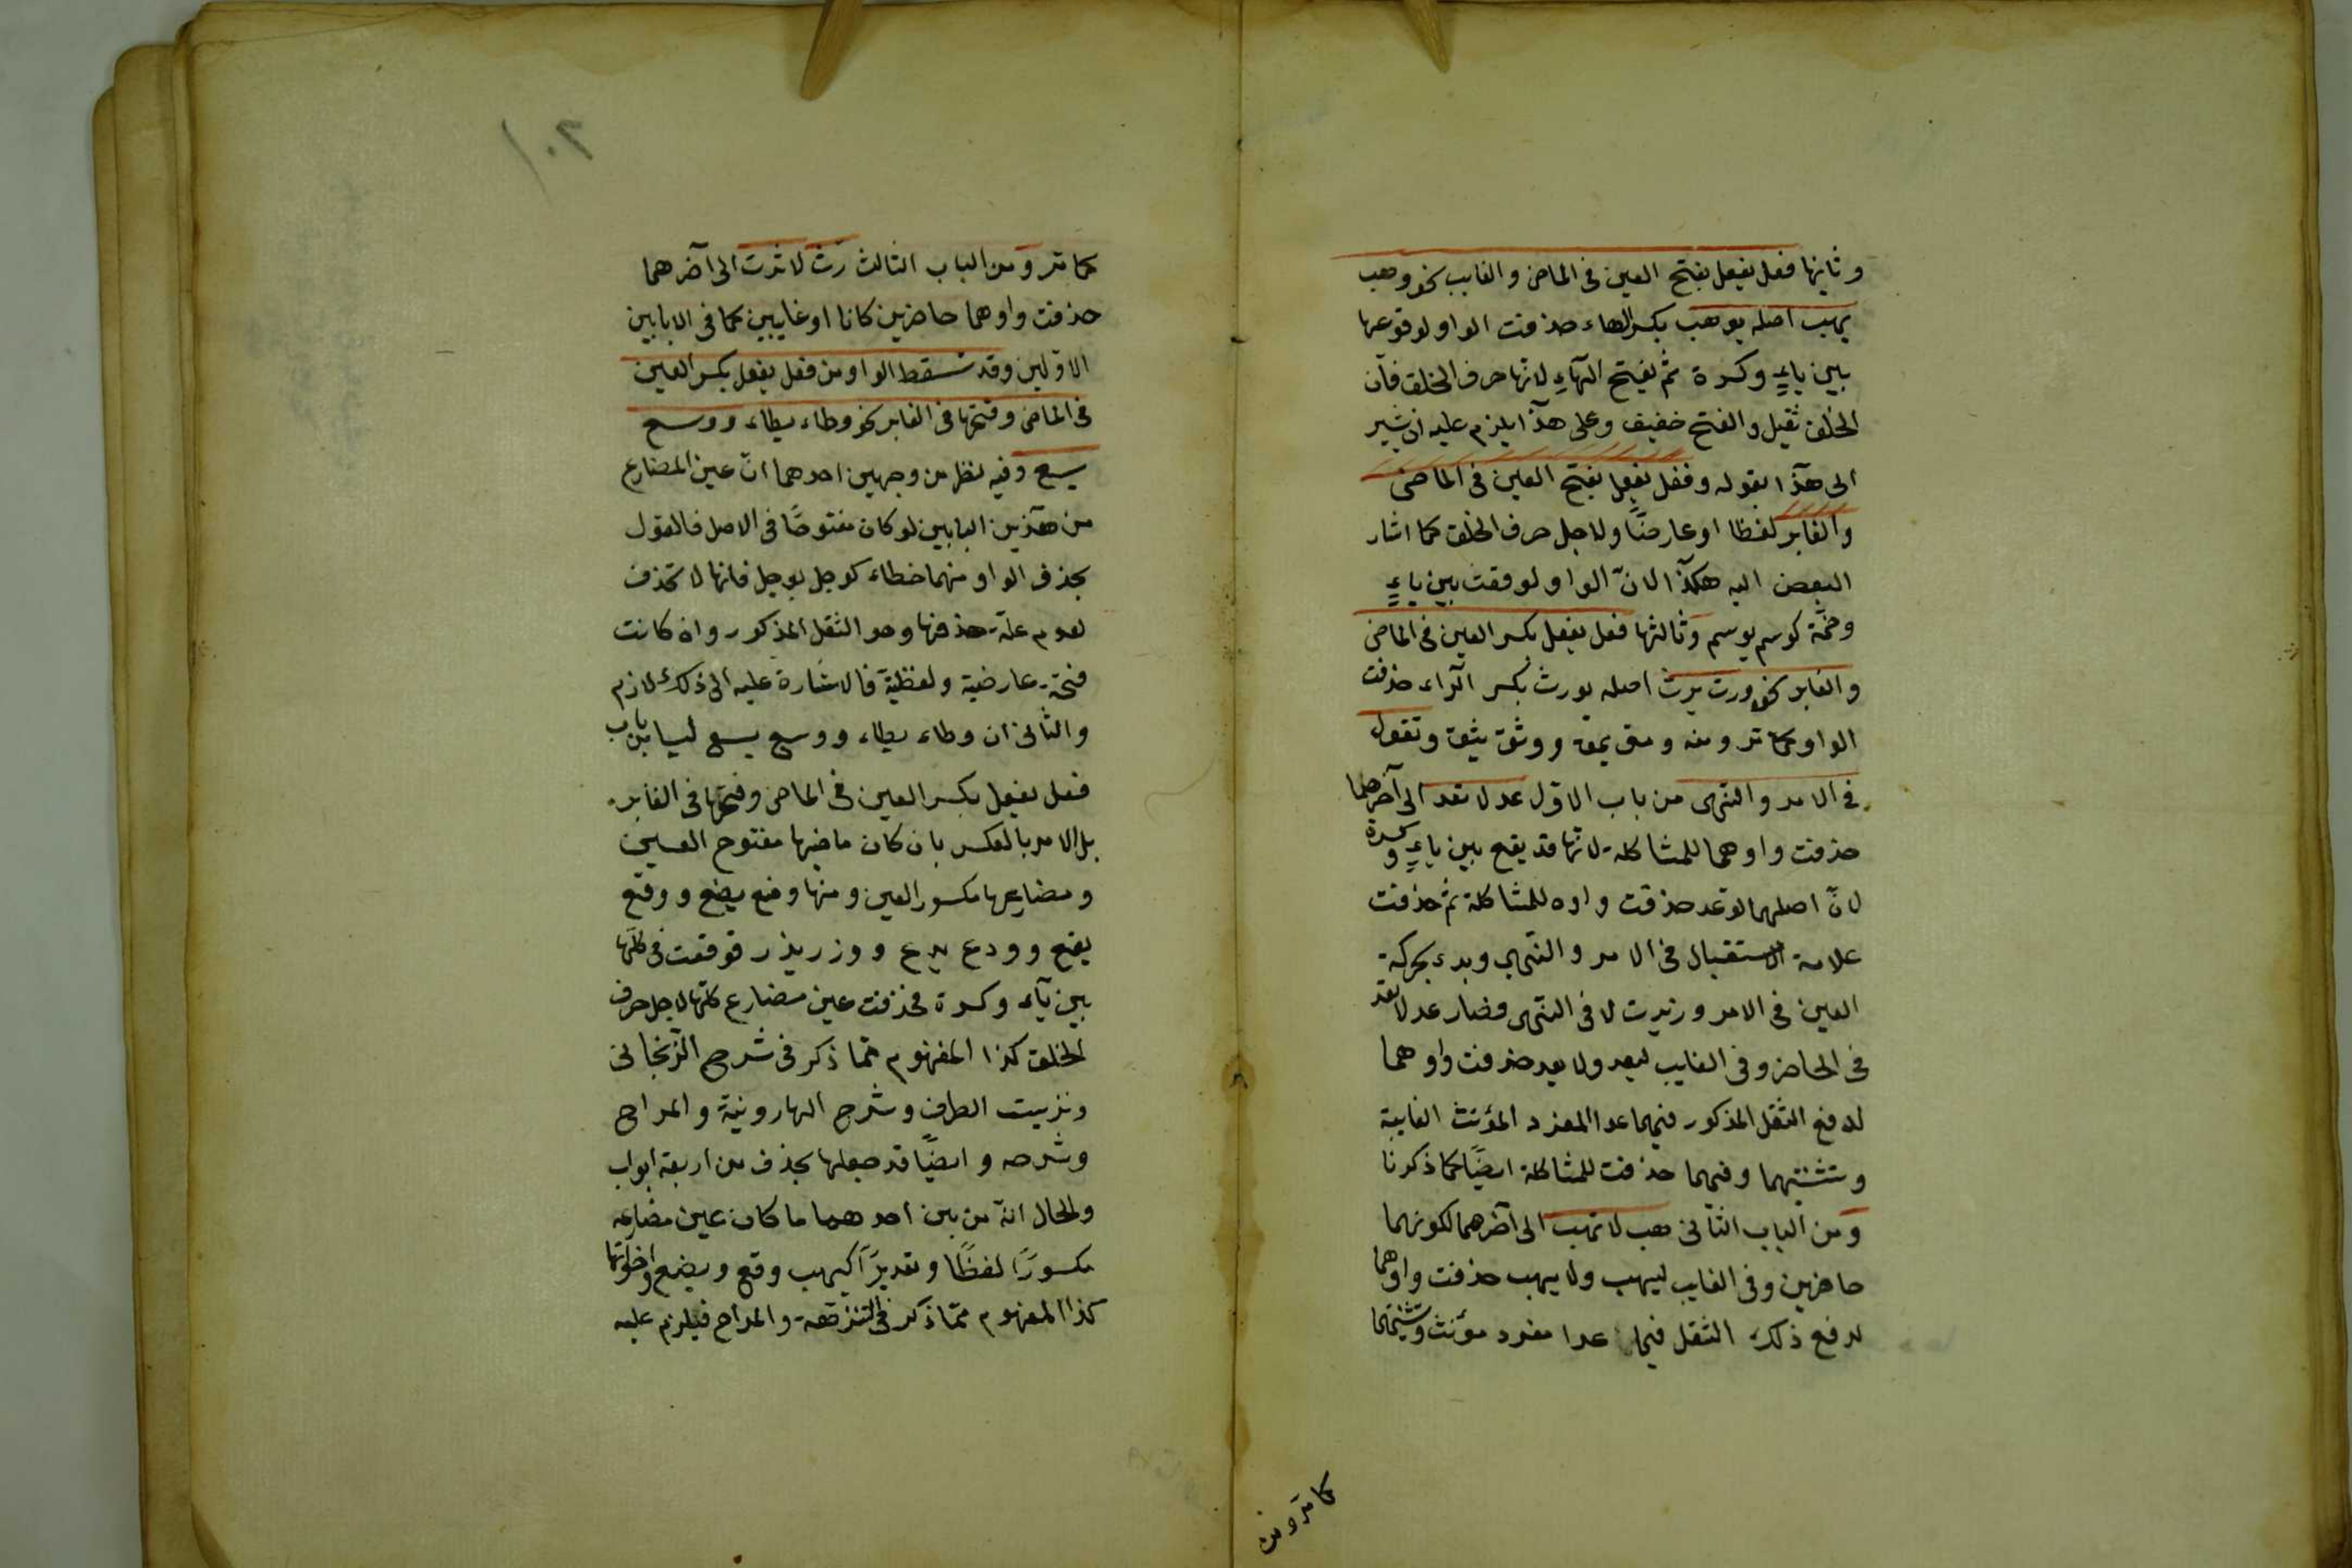 وثانيها فعل يفعل بفتح العين فى الماضى والغايب نحو وهب
يهب اصله يوهب بكسر الهاء حذفت الواو لوقوعها
بين ياءٍ وكسرة ثم يفتح الهآء لانها حرف الحلق فان
الحلق ثقيل والفتح خفيف وعلى هذا يلزم عليه ان يشير
الى هذا بقوله وفعل يفعل بفتح العين فى الماضى
والغابر لفظا او عارضًا ولاجل حرف الحلق كما اشار
البعض اليه هكذا لانّ الواو لو وقعت بين ياءٍ
وضمّة كوسم يوسم وثالثها فعل يفعل بكسر العين فى الماضى
والغابر نحو ورث يرث اصله يورث بكسر الرّاء حذفت
الواو كما مر ومنه ومق يمق ووثق يثق وتقول
فى الامر والنهى من باب الاول عد لا تعد الى آخرهما
حذفت واوهما للمشاكلة لانها قد يقع بين ياءٍ وكسرة
لانّ اصلهما توعد حذفت واوه للمشاكلة ثم حذفت
علامة الاستقبال فى الامر والنّهى وبدء بحركة
العين فى الامر وزيدت لا فى النّهى فصار عد لا تعد
فى الحاضر وفى الغايب ليعد ولا يعد حذفت واوهما
لدفع الثقل المذكور فيهما عدا المفرد المؤنث الغايبة
وتثنيتهما وفيهما حذفت للمشاكلة ايضًا كما ذكرنا
ومن الباب الثّانى هب لا تهب الى آخرهما لكونهما
حاضرين وفى الغايب ليهب ولا يهب حذفت واوهما
لدفع ذلك الثقل فيما عدا مفرد مؤنث وتثنيتهما
كما مرّ ومن
١٠٢
كما مر ومن الباب الثالث رث لا ترث الى آخرهما
حذفت واوهما حاضرين كانا او غايبين كما فى الابابين
الاوّلين وقد تسقط الواو من فعل يفعل بكسر العين
فى الماضى وفتحها فى الغابر نحو وطاء يطاء ووسع
يسع وفيه نظر من وجهين احدهما انّ عين المضارع
من هذين البابين لو كان مفتوحًا فى الاصل فالقول
بحذف الواو منهما خطاء كوجل يوجل فانها لا تحذف
لعدم علة حذفها وهو الثقل المذكور وان كانت
فتحة عارضية ولفظية فالاشارة عليه الى ذلك لازم
والثانى ان وطاء يطاء ووسع يسع ليسا من باب
فعل يفعل بكسر العين فى الماضى وفتحها فى الغابر
بل الامر بالعكس بان كان ماضيها مفتوح العين
ومضارعها مكسور العين ومنها وضع يضع ووقع
يقع وودع يدع ووزر يذر فوقعت فى كلها
بين يآء وكسرة فحذفت عين مضارع كلها لاجل حرف
الحلق كذا المفهوم مما ذكر فى شرح الزّنجانى
ونزهت الطرف وشرح الهارونية والمراح
وشرحه وايضًا قد جعلها بحذف من اربعة ابواب
والحال انه من بين احدهما ما كان عين مضارعه
مكسورًا لفظًا وتقديرًا كيهب وقع ويضع واخواتها
كذا المفهوم ممّا ذكر فى النزهة والمراح فيلزم عليه